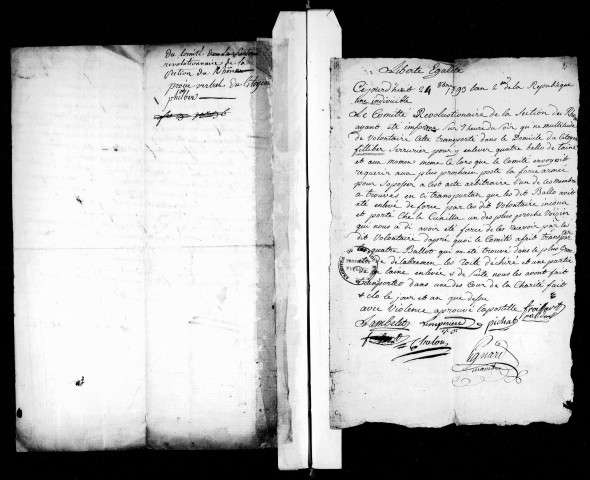 du Comité
revolutionnaire de la
Section du Rhône
proces verbal du Citoyen
Liberté Egalité
Ce jourd'huit 24 8bre 1793 L'an 2me de la Republique
une indivisible
Le Comitté Revolustionaire de la Section du Rhône
ayant eté informé sur l'heure du Soir qu'ne multitude
de volontaire cette transporté dans le Domicile du Citoyen
filliber Serrurier pour y enlever quatre balles de laine
et aux momen meme le lors que le Comité envoyoit
requerir aux plus prochain poste la force armée
pour s'oposser a cest acte arbitraire l'un de ces membre
a trouvés en ti transportan que les dit Ballo avoit
eté enlevé de force par les dit volontaire inconu
et porté che le un des plus proche voisin
qui nous a di avoir eté forcé de les recevoir par les
dit volontaire dapré quoi le Comité a fait transpor
les quatre Ballot qui on eté trouvé dans le plus
de delabremen les toile dechiré et une partie
laine enlevée & de Suite nous les avont fait
transporter dans une des Cour de la Charité fait
& clo le jour et an que desu
avec violence aprouvé l'apostille
Lambelot pichat
Chelou